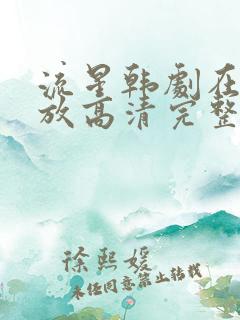 流星韩劇在
放高清完整
徐熙媛
未经同意禁止转载